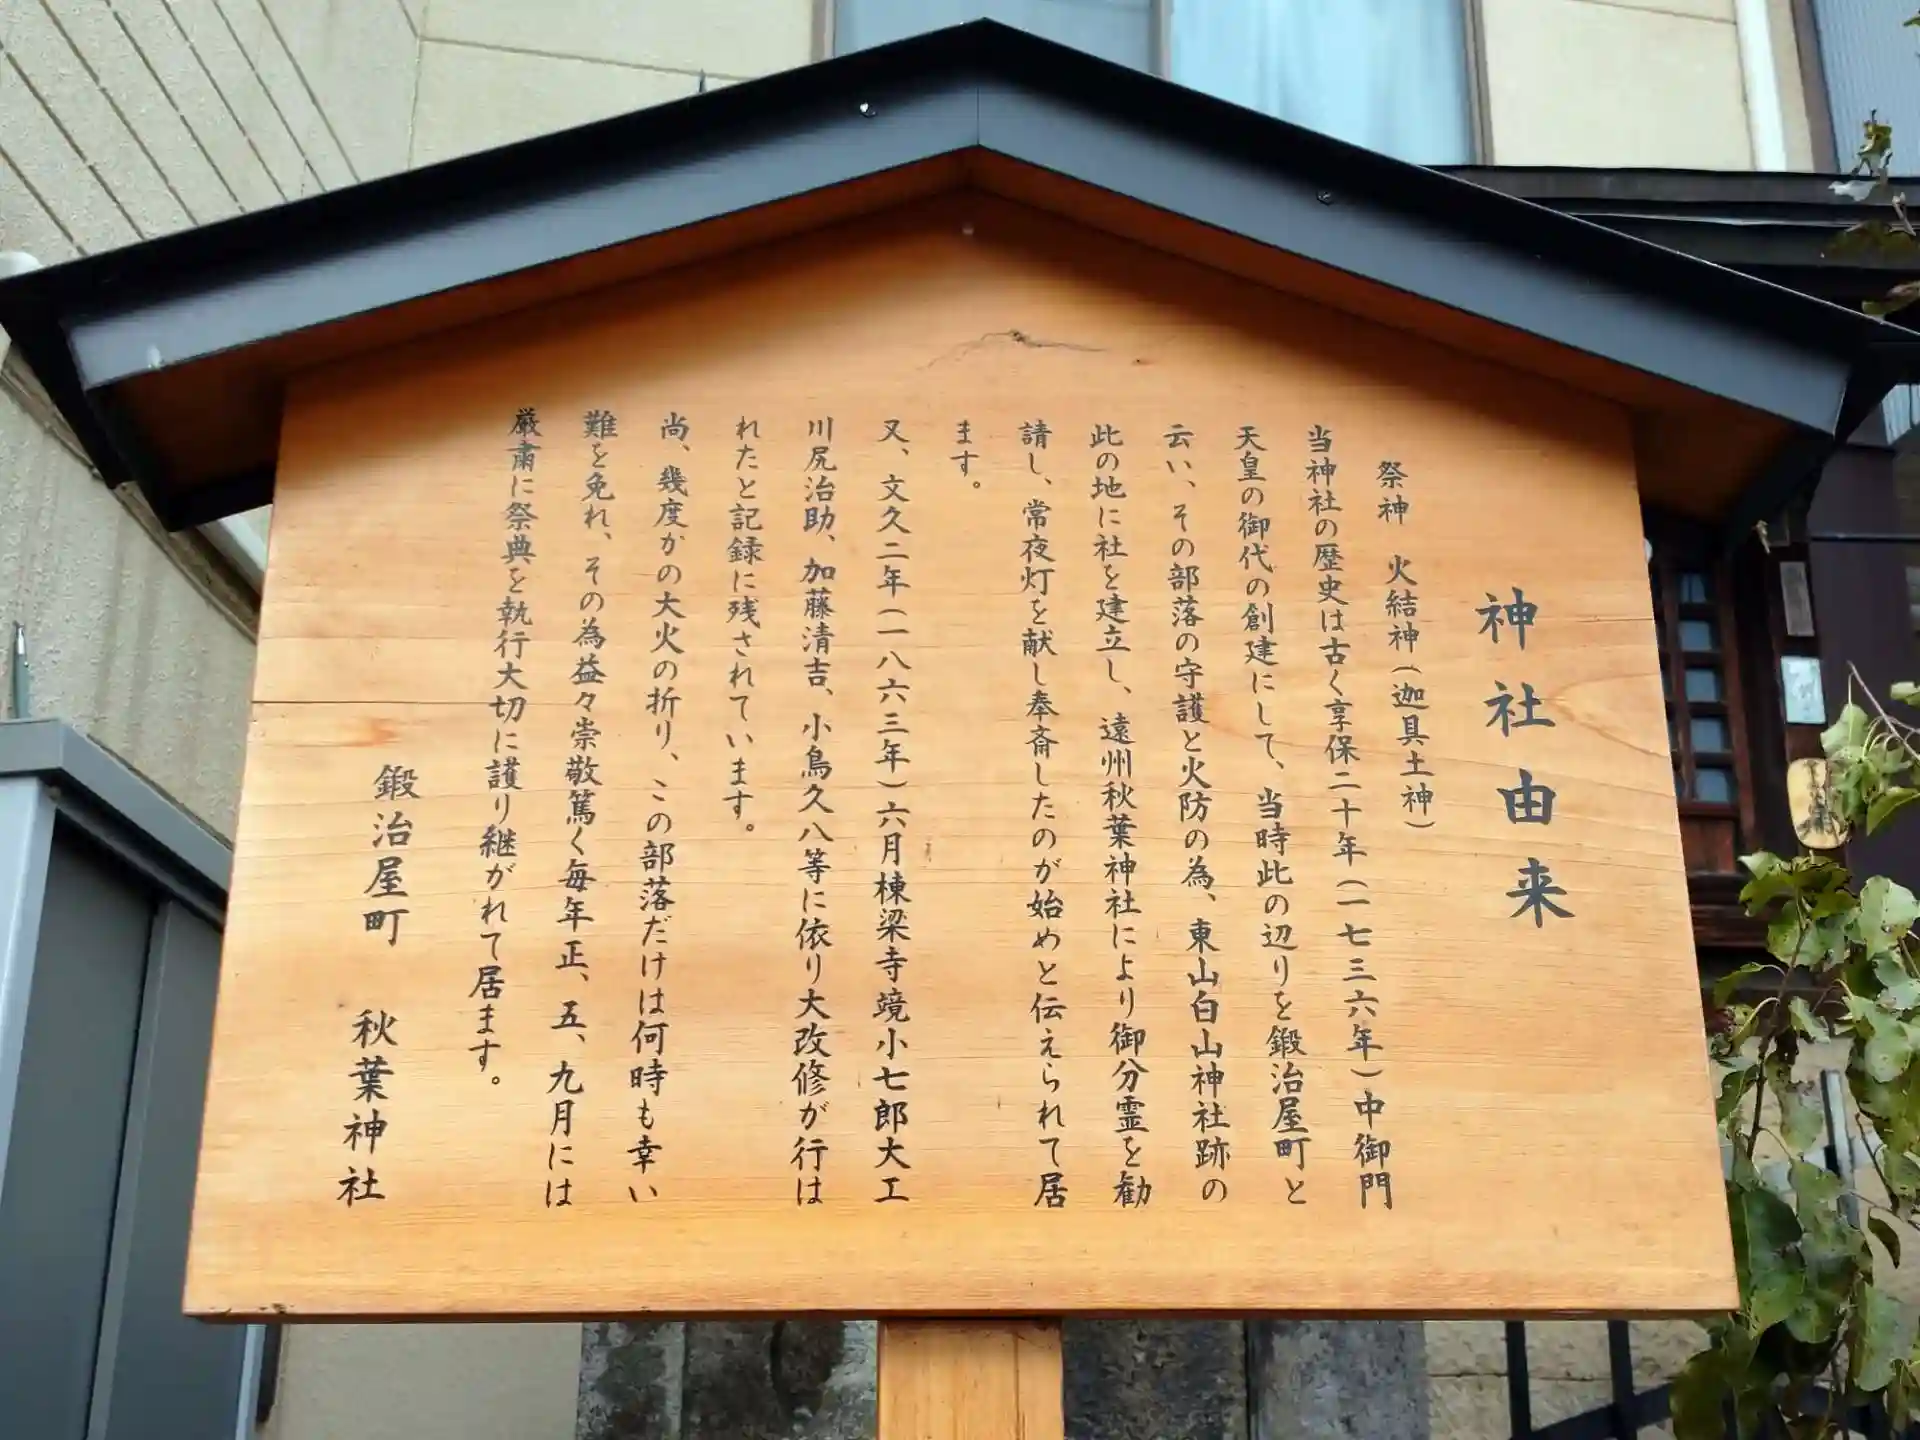 神社由来
祭神　火結神（迦具土神）
当神社の歴史は古く享保二十年（一七三六年）中御門
天皇の御代の創建にして、当時此の辺りを鍛治屋町と
云い、その部落の守護と火防の為、東山白山神社跡の
此の地に社を建立し、遠州秋葉神社により御分霊を勧
請し、常夜灯を献し奉斎したのが始めと伝えられて居
ます。
又、文久二年（一八六三年）六月棟梁寺境小七郎大工
川尻治助、加藤清吉、小鳥久八等に依り大改修が行は
れたと記録に残されています。
尚、幾度かの大火の折り、この部落だけは何時も幸い
難を免れ、その為益々崇敬篤く毎年正、五、九月には
厳粛に祭典を執行大切に護り継がれて居ます。
鍛治屋町　秋葉神社